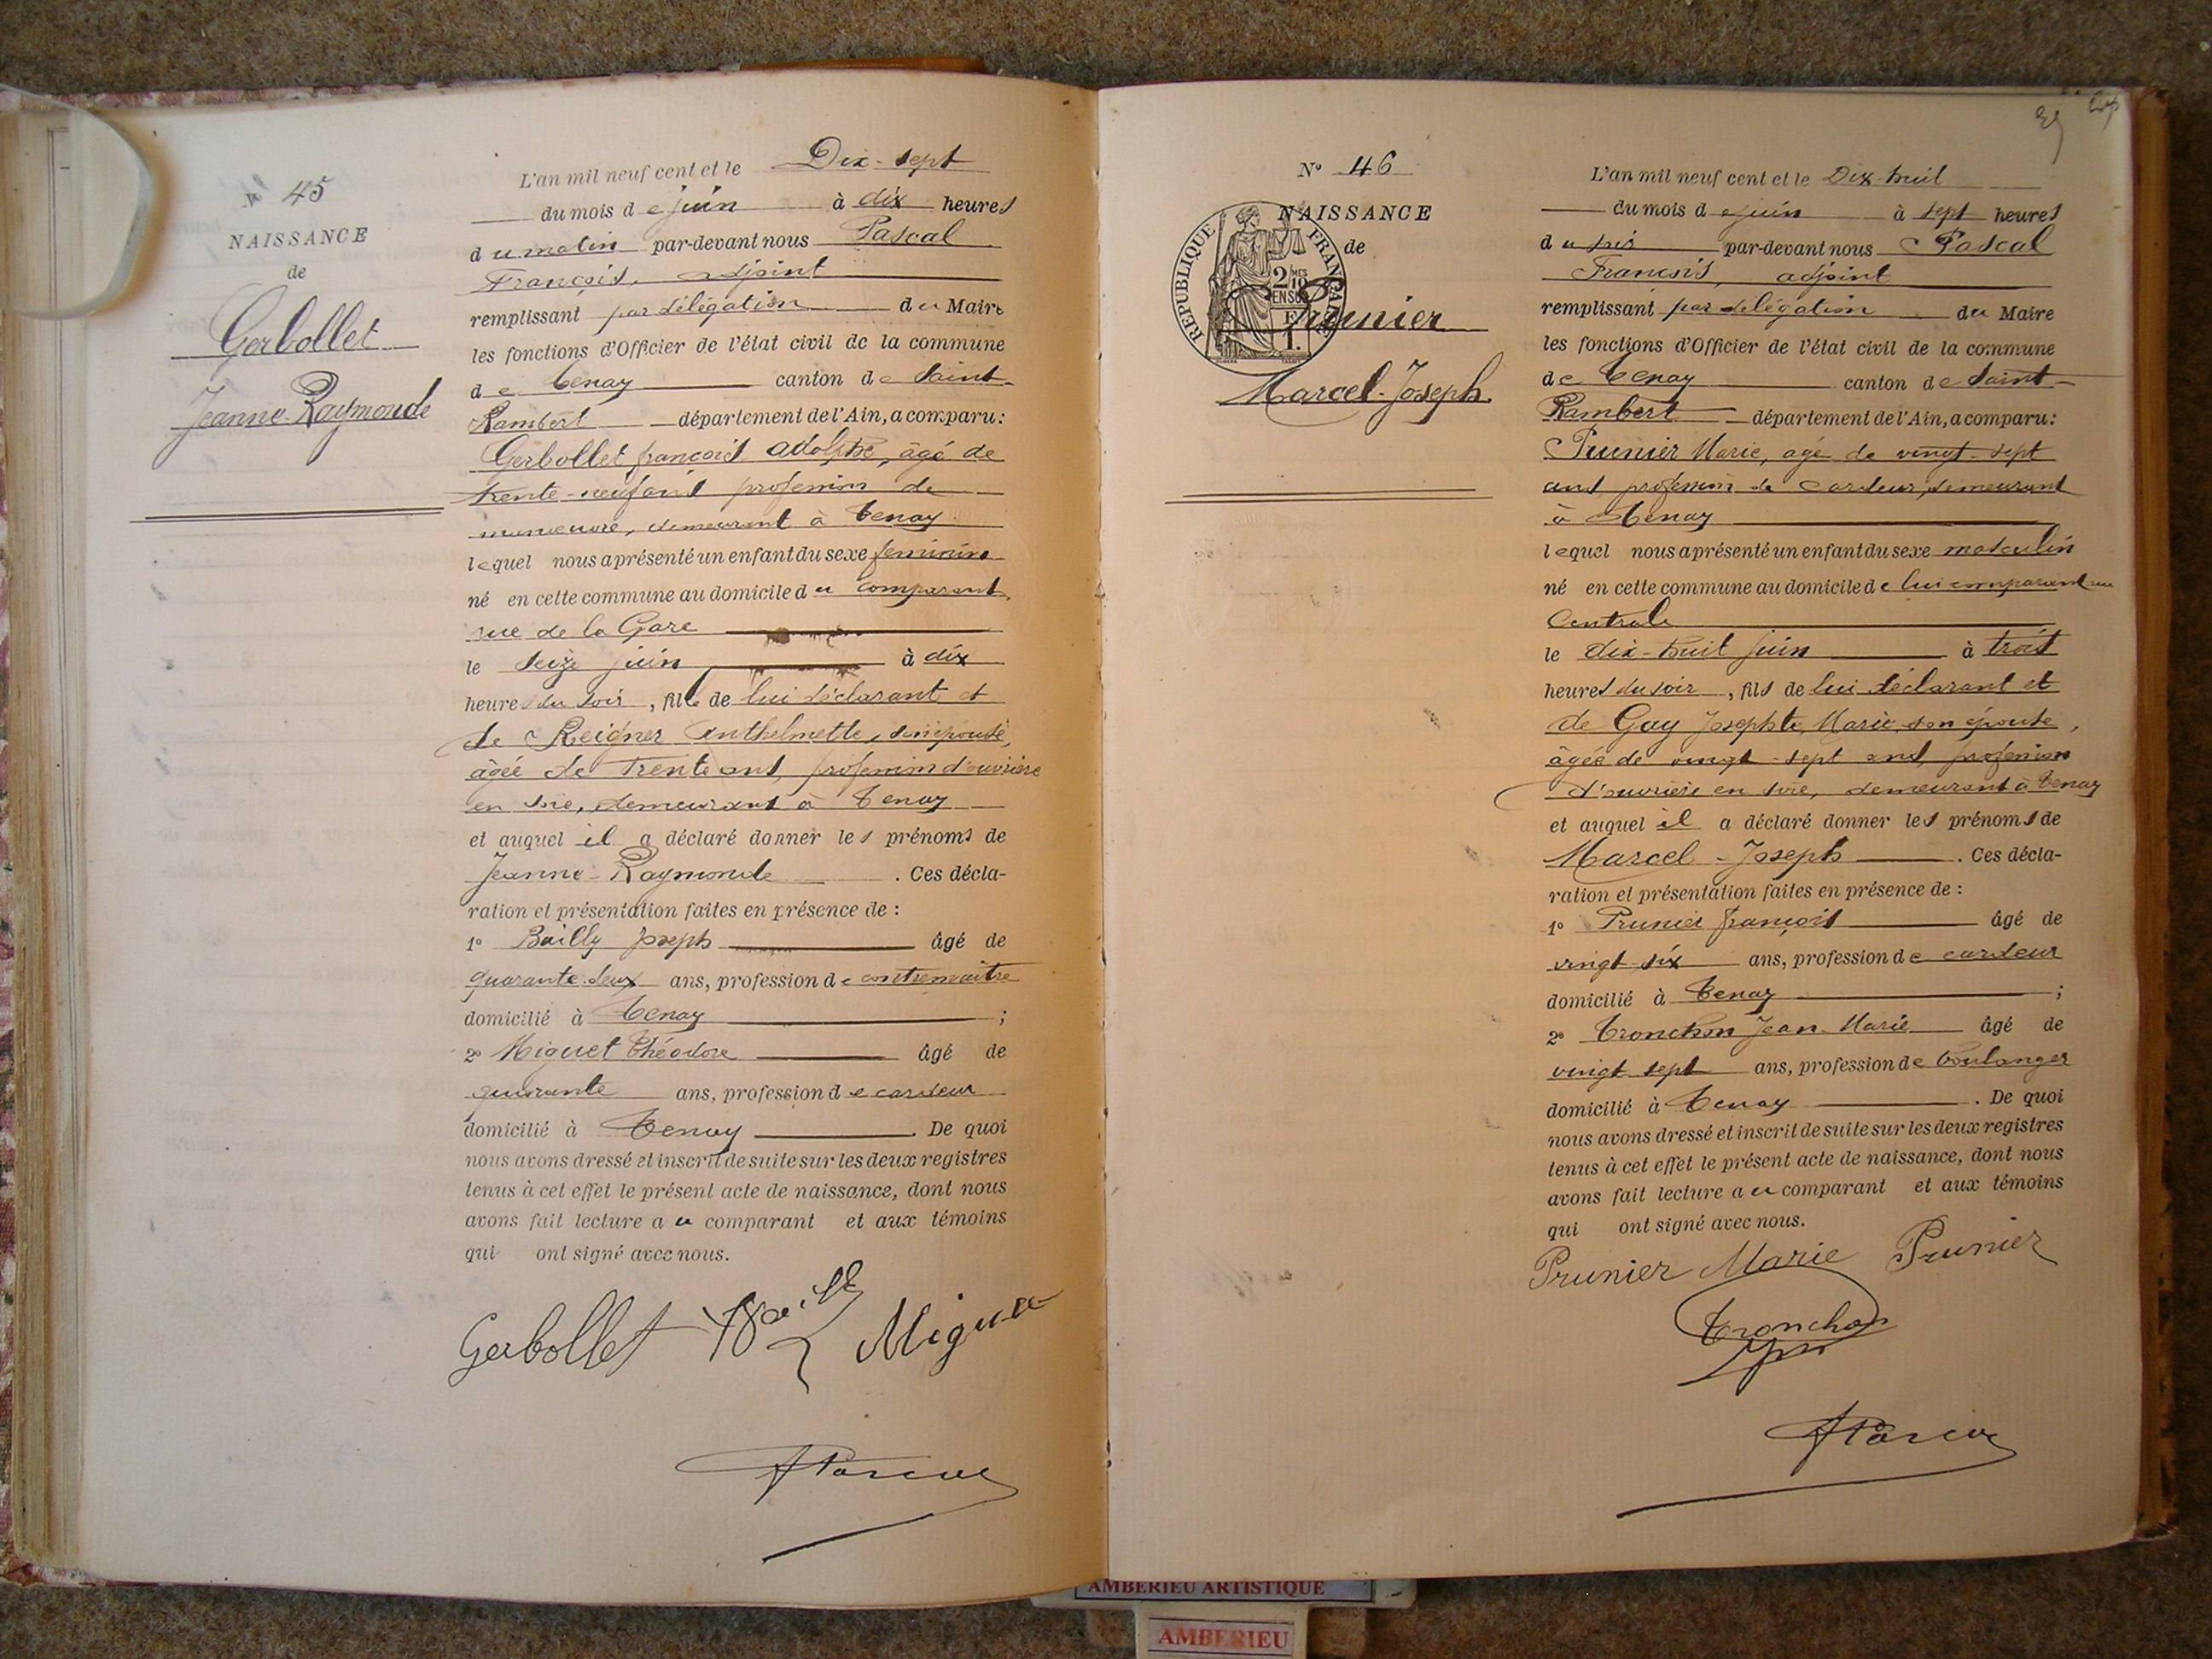 N° 45
NAISSANCE
de
Gerbollet
Jeanne-Raymonde
L'an mil neuf cent et le Dix-sept
du mois de juin à dix heures
du matin par-devant nous Pascal
François, adjoint
remplissant par délégation du Maire
les fonctions d'Officier de l'état civil de la commune
de Tenay canton de Saint-
Rambert département de l'Ain, a comparu:
Gerbollet françois adolphe, âgé de
trente-neuf ans profession de
manœuvre, demeurant à Tenay
lequel nous a présenté un enfant du sexe feminin
né en cette commune au domicile du comparant,
rue de la Gare
le seize juin à dix
heures du soir, fille de lui déclarant et
de Reigner Anthelmette, son épouse,
âgée de trente ans, profession d'ouvrière
en soie, demeurant à Tenay
et auquel il a déclaré donner les prénoms de
Jeanne-Raymonde. Ces décla-
ration et présentation faites en présence de :
1° Bailly Joseph âgé de
quarante-deux ans, profession de contremaitre
domicilié à Tenay ;
2° Miguet Théodore âgé de
quarante ans, profession de cardeur
domicilié à Tenay. De quoi
nous avons dressé et inscrit de suite sur les deux registres
tenus à cet effet le présent acte de naissance, dont nous
avons fait lecture au comparant et aux témoins
qui ont signé avec nous.
Gerbollet Bailly Miguet
Pascal
N° 46
NAISSANCE
de
RÉPUBLIQUE FRANÇAISE
2/10 MES
EN SUS
Prunier
Marcel-Joseph
L'an mil neuf cent et le Dix-huit
du mois de juin à sept heures
du soir par-devant nous Pascal
François, adjoint
remplissant par délégation du Maire
les fonctions d'Officier de l'état civil de la commune
de Tenay canton de Saint-
Rambert département de l'Ain, a comparu:
Prunier Marie, agé de vingt-sept
ans, profession de cardeur, demeurant
à Tenay
lequel nous a présenté un enfant du sexe masculin
né en cette commune au domicile de lui comparant rue
Centrale
le dix-huit juin à trois
heures du soir, fils de lui déclarant et
de Gay Josephte Marie, son épouse,
âgée de vingt-sept ans, profession
d'ouvrière en soie, demeurant à Tenay
et auquel il a déclaré donner les prénoms de
Marcel-Joseph. Ces décla-
ration et présentation faites en présence de :
1° Prunier françois âgé de
vingt-six ans, profession de cardeur
domicilié à Tenay ;
2° Tronchon Jean-Marie âgé de
vingt sept ans, profession de boulanger
domicilié à Tenay. De quoi
nous avons dressé et inscrit de suite sur les deux registres
tenus à cet effet le présent acte de naissance, dont nous
avons fait lecture au comparant et aux témoins
qui ont signé avec nous.
Prunier Marie Prunier
Tronchon
Pascal
AMBERIEU ARTISTIQUE
AMBERIEU